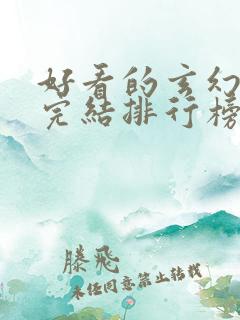 好看的玄幻
完结排行榜
滕飞
未经同意禁止转载